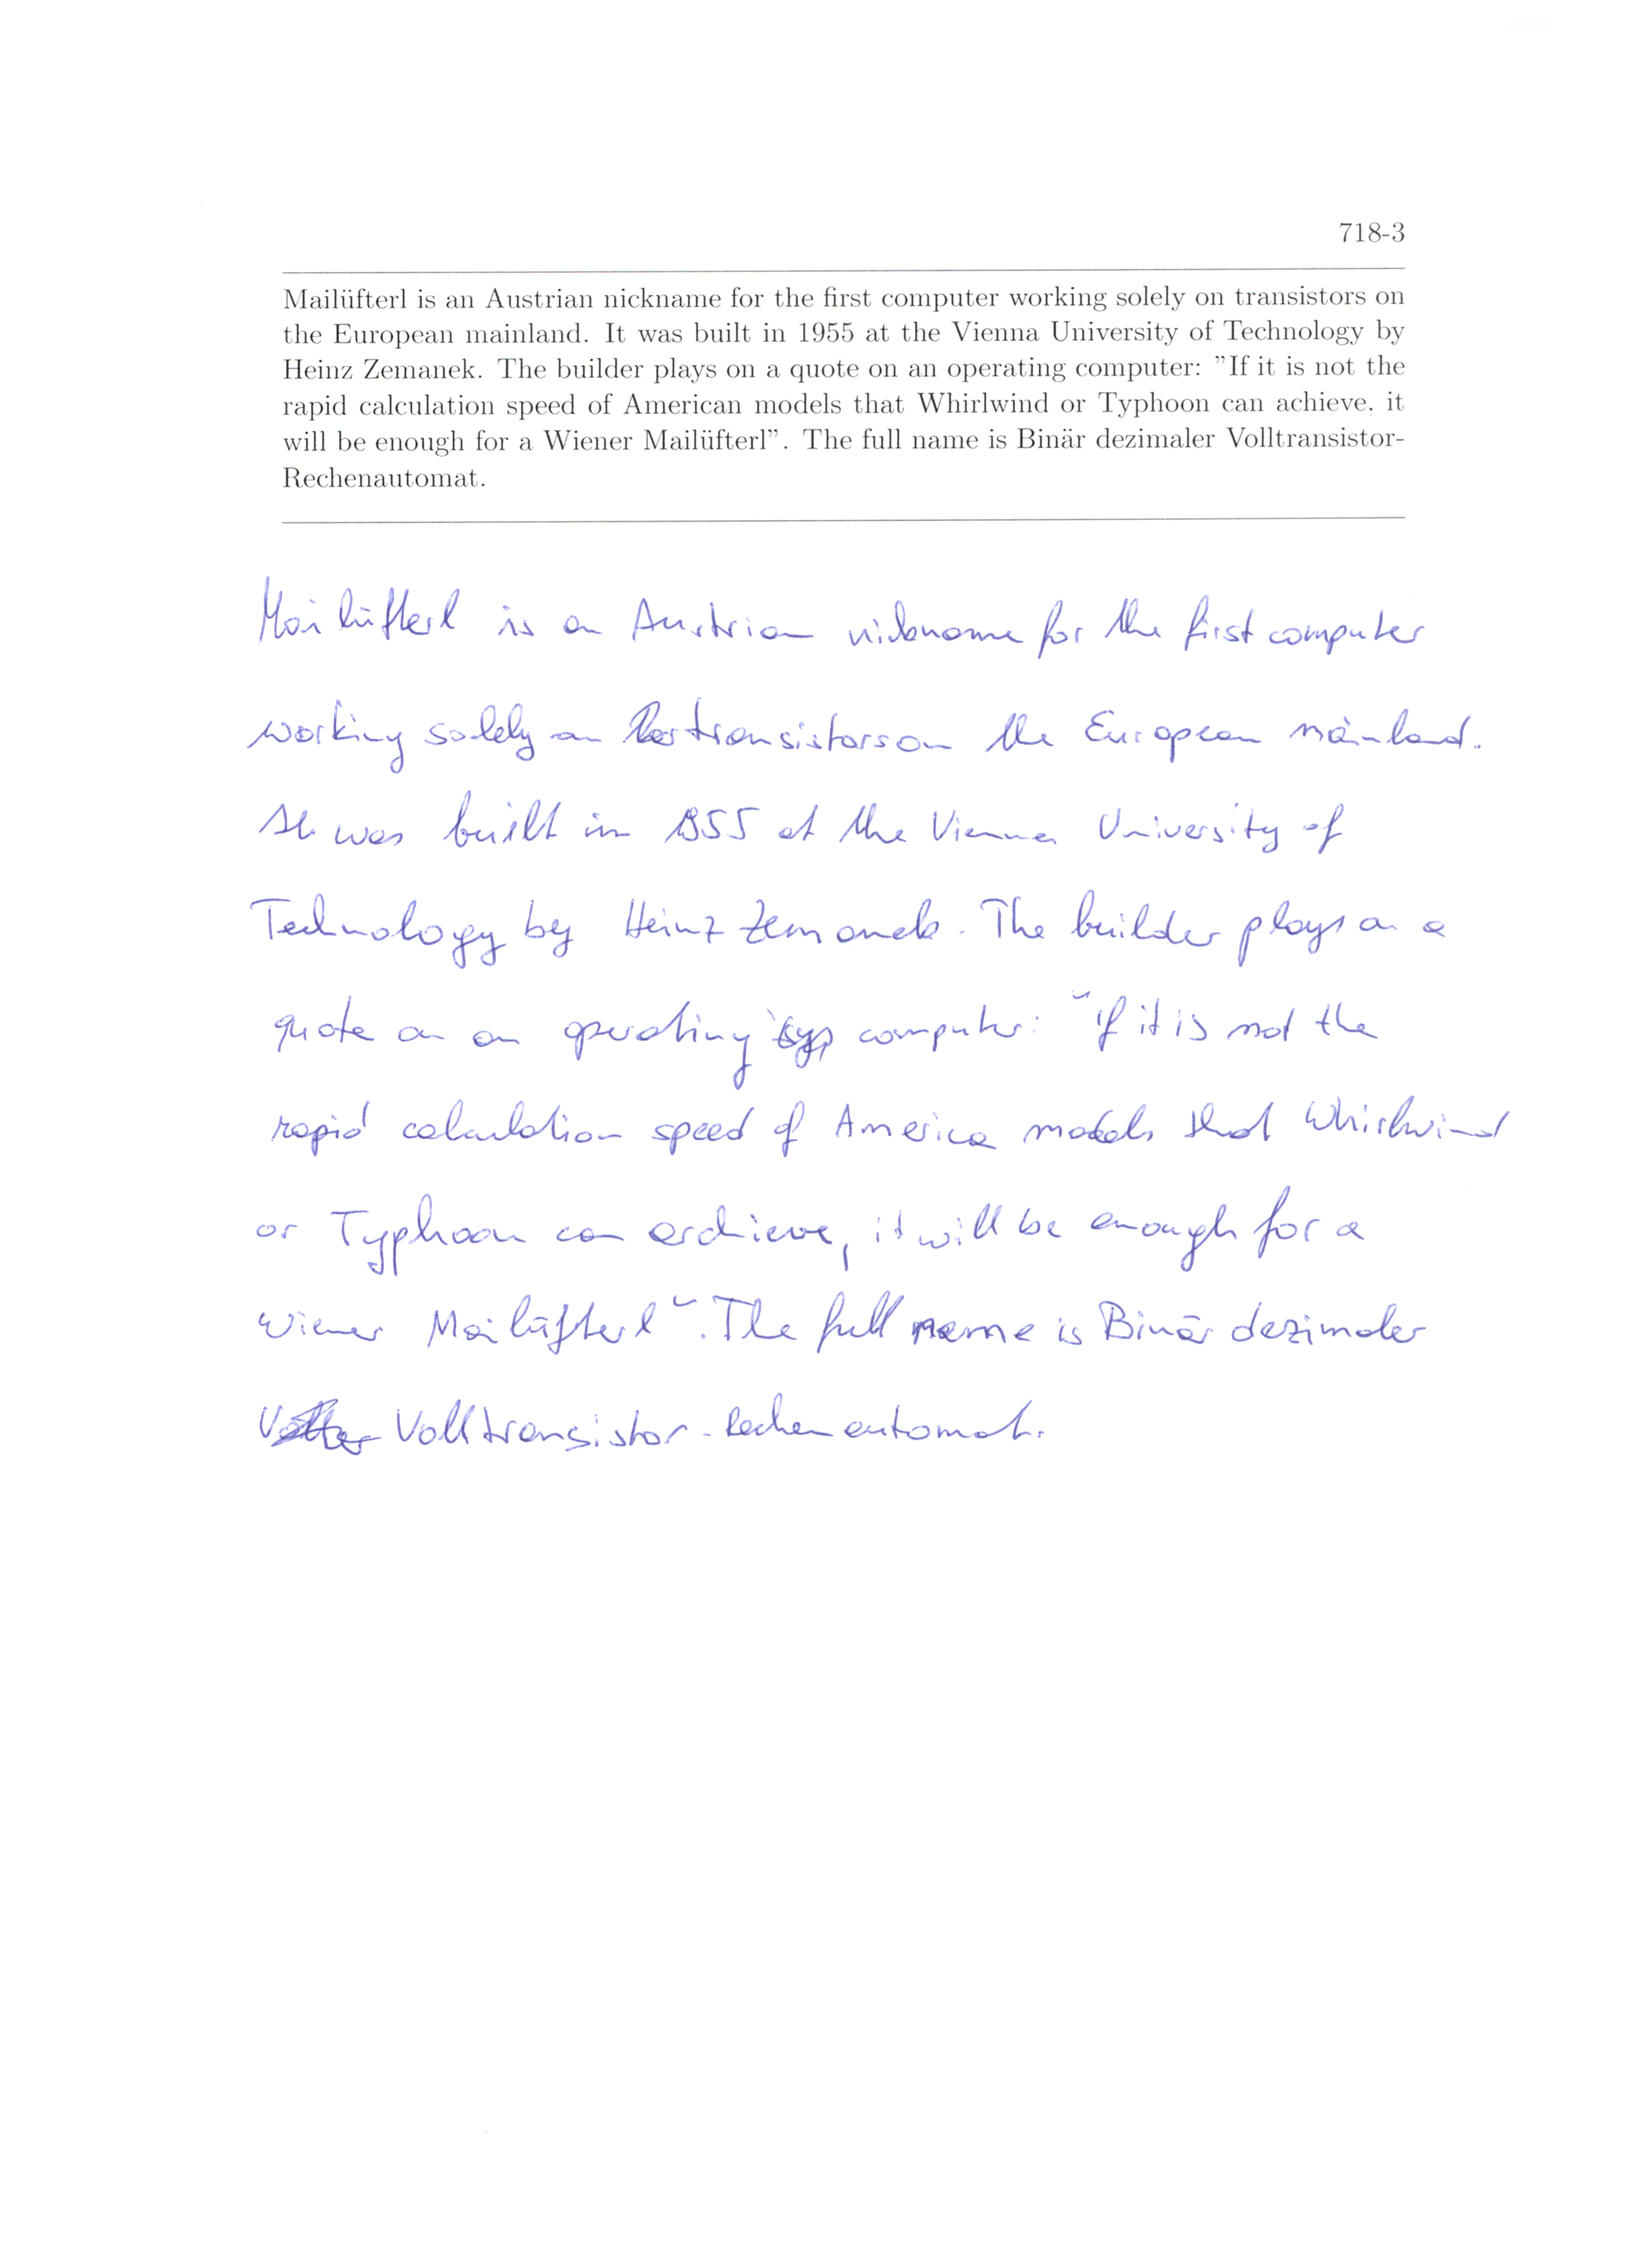 718-3
Mailüfterl is an Austrian nickname for the first computer working solely on transistors on
the European mainland. It was built in 1955 at the Vienna University of Technology by
Heinz Zemanek. The builder plays on a quote on an operating computer: ”If it is not the
rapid calculation speed of American models that Whirlwind or Typhoon can achieve. it
will be enough for a Wiener Mailüfterl”. The full name is Binär dezimaler Volltransistor-
Rechenautomat.
Mailüfterl is an Austrian nickname for the first computer
working solely on transistors on the European mainland.
It was built in 1955 at the Vienna University of
Technology by Heinz Zemanek. The builder plays on a
quote on an operating computer: "if it is not the
rapid calculation speed of America models that Whirlwind
or Typhoon can archieve, it will be enough for a
Wiener Mailüfterl". The full name is Binär dezimaler
Volltransistor-Rechenautomat.